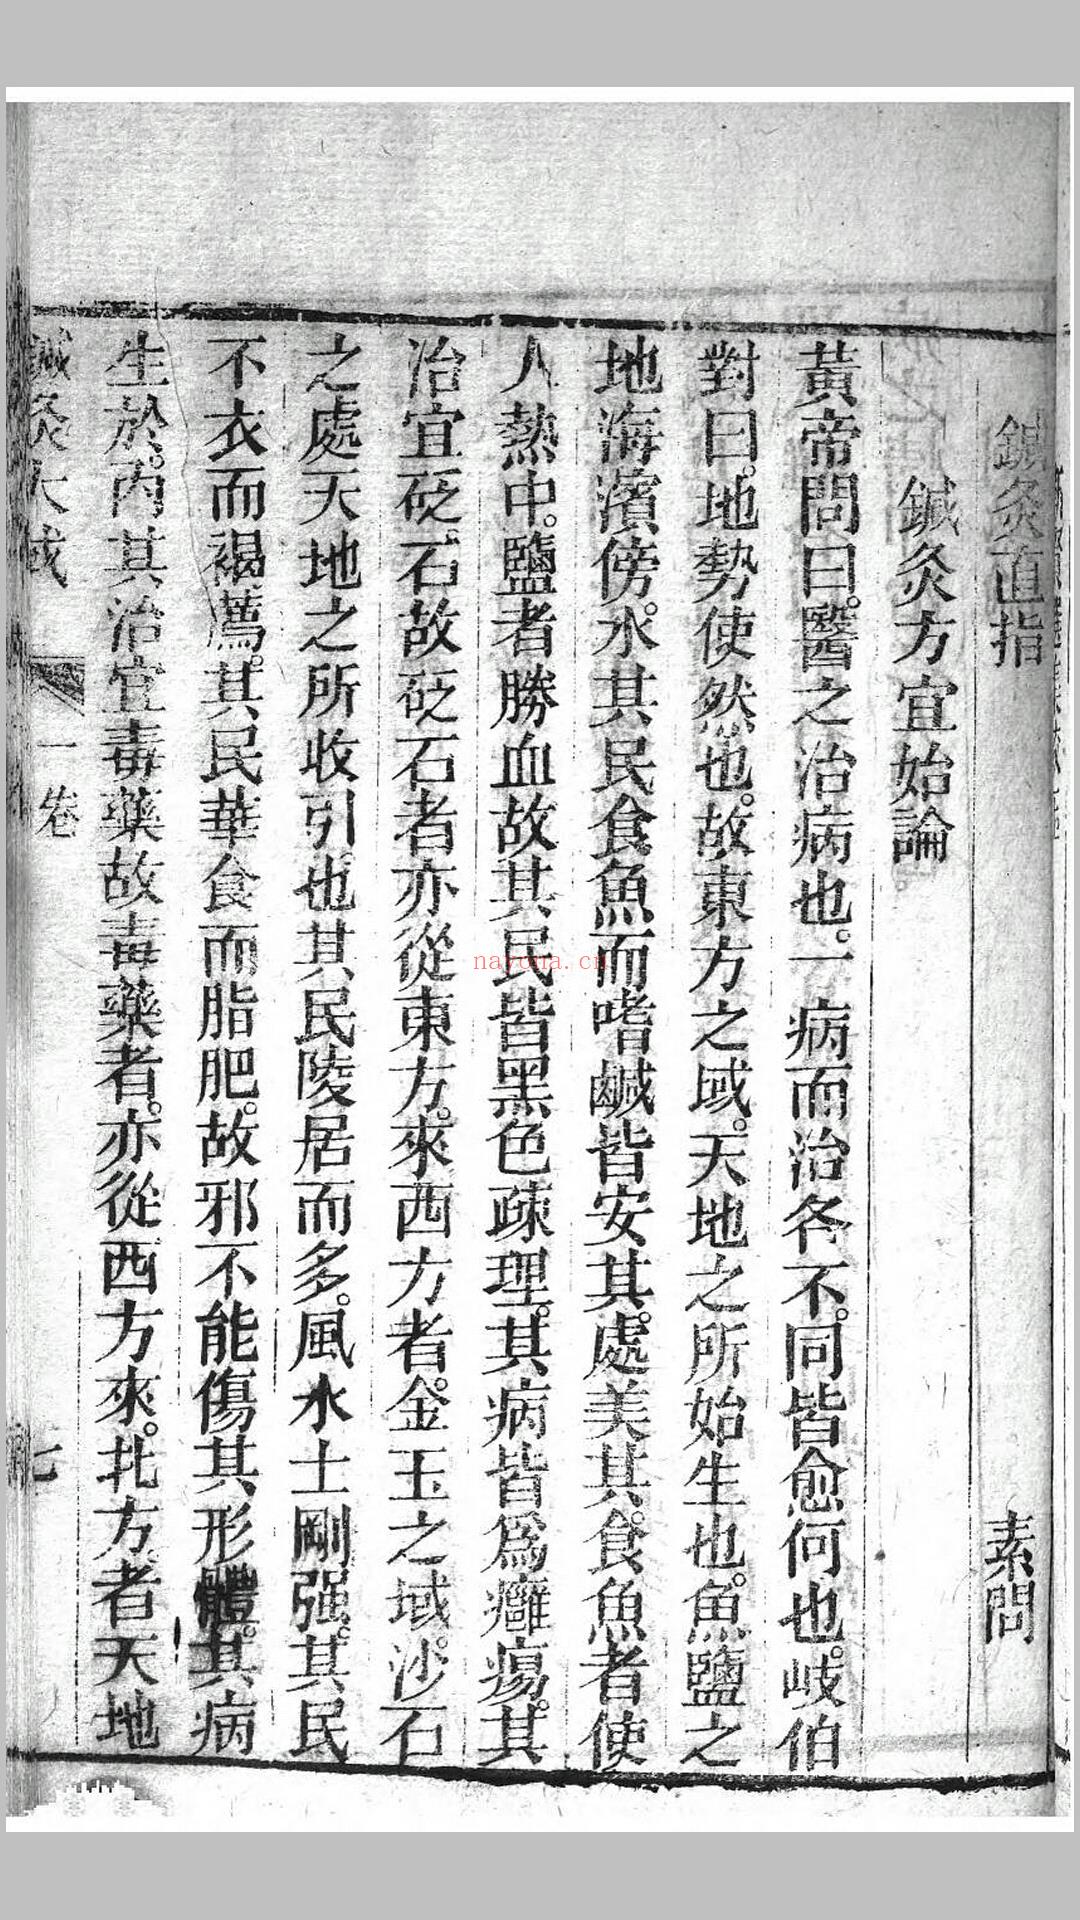 鍼灸直指　素問
鍼灸方宜始論
黃帝問曰。醫之治病也。一病而治各不。同皆愈何也。岐伯
對曰。地勢使然也。故東方之域。天地之所始生也。魚鹽之
地海濱傍。水其民食魚而嗜鹹皆安其。處美其。食魚者使
人熱中。鹽者勝血故其民皆黑色疎理。其病皆爲癰瘍。其
治宜砭。石故砭石者亦從東方。來西方者。金玉之域。沙石
之處天地之所收引。也其民陵居而多。風水土剛强。其民
不衣而褐薦。其民華食而脂肥。故邪不能傷其形體。其病
生於。內其治宜毒藥故毒藥者。亦從西方來。北方者天地
鍼灸大成　一卷　七
nayona.cn